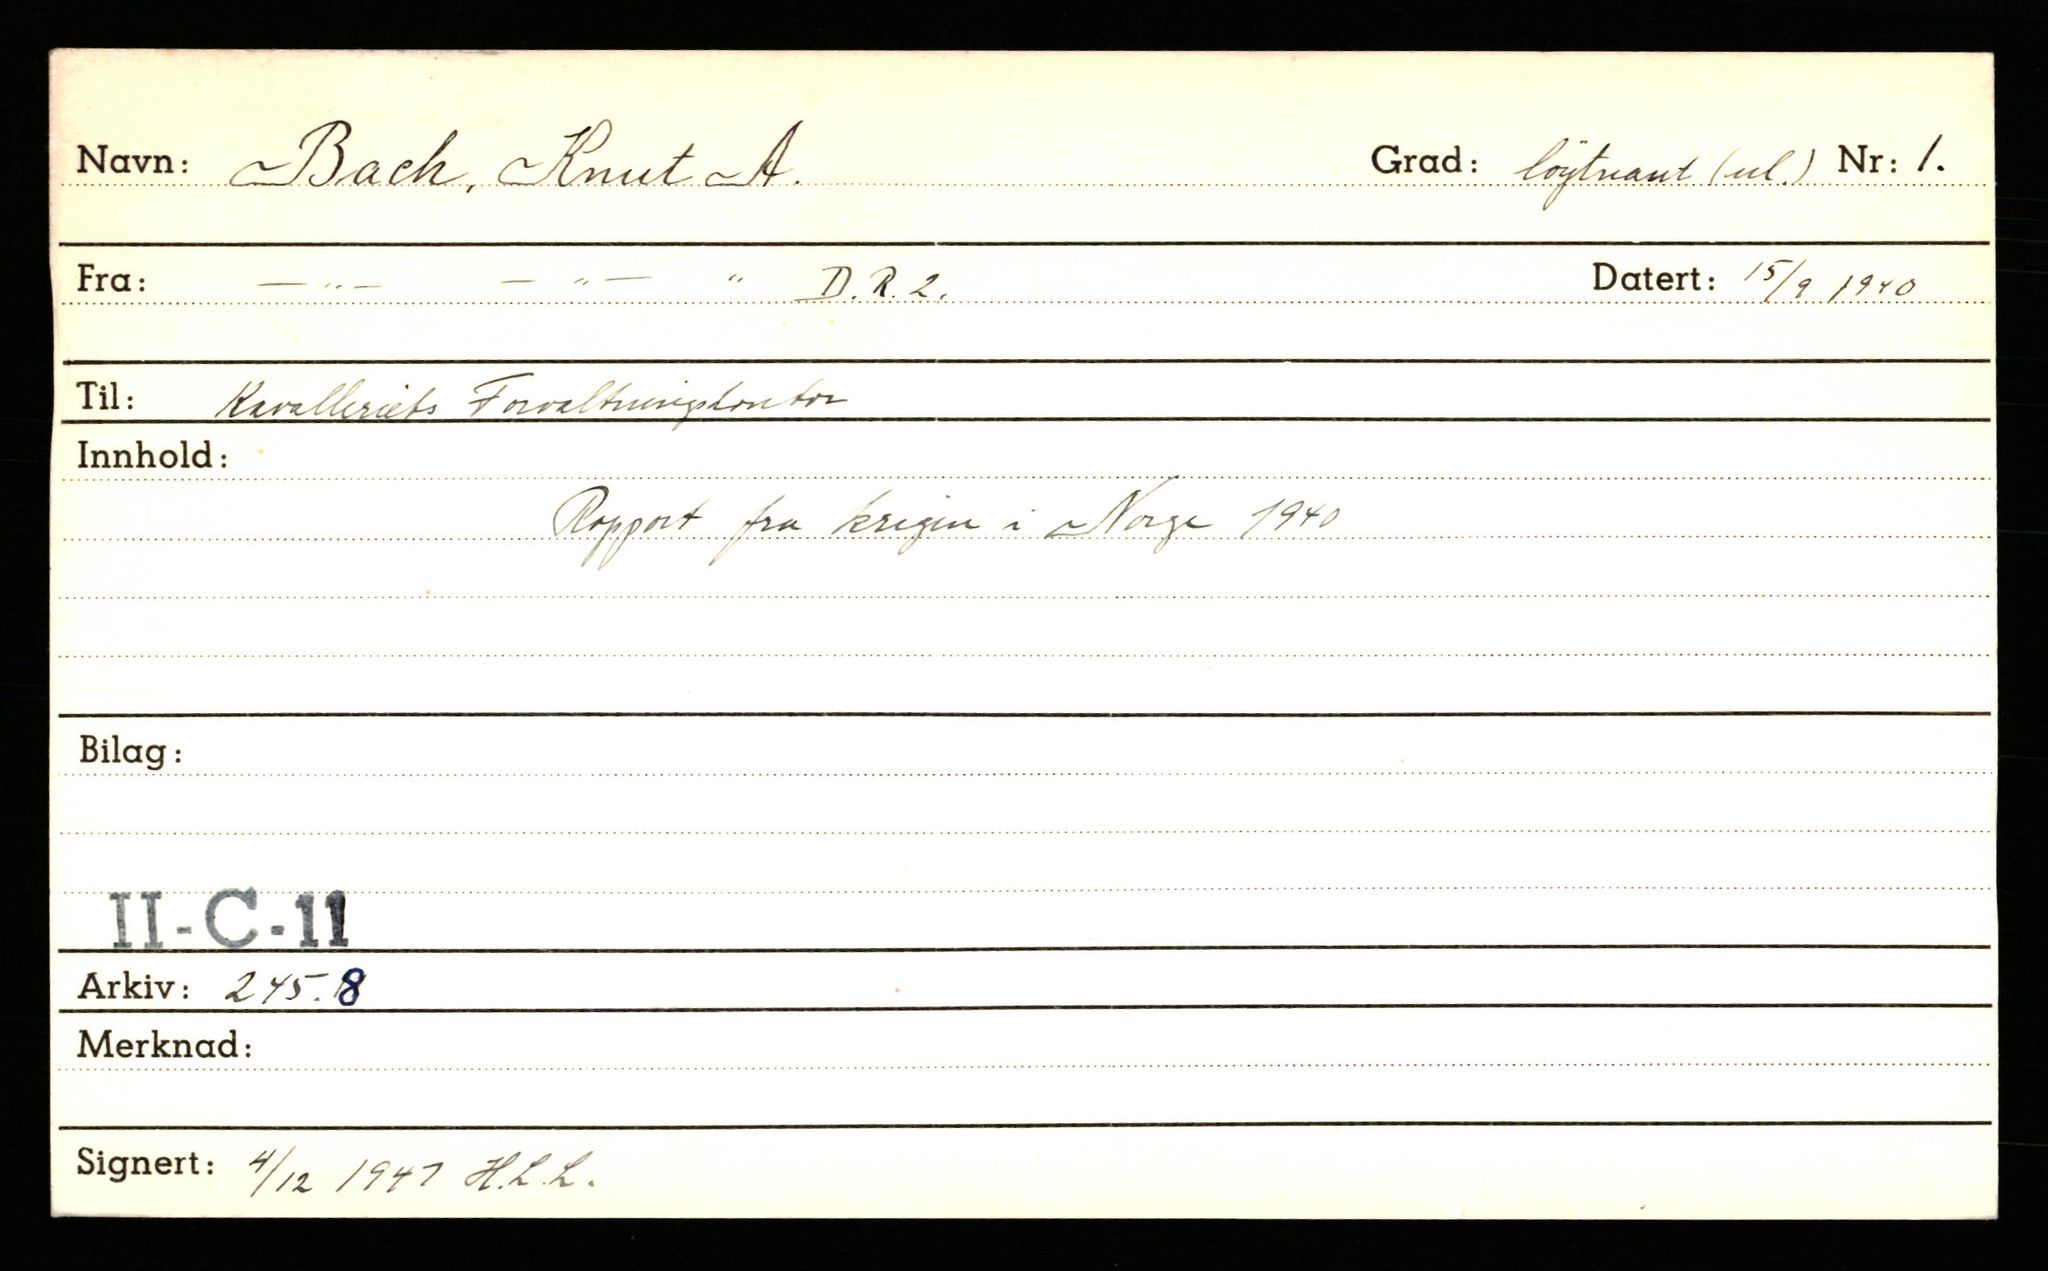 Navn: Bach, Knut A. Grad: löytnant (ul.) Nr: 1.
Fra: —〃— —〃— 〃 D.R.2. Datert: 15/9 1940
Til: Kavalleriets Forvaltningskontor
Innhold:
Rapport fra krigen i Norge 1940
Bilag:
II-C-11
Arkiv: 245.8
Merknad:
Signert: 4/12 1947 H.L.L.